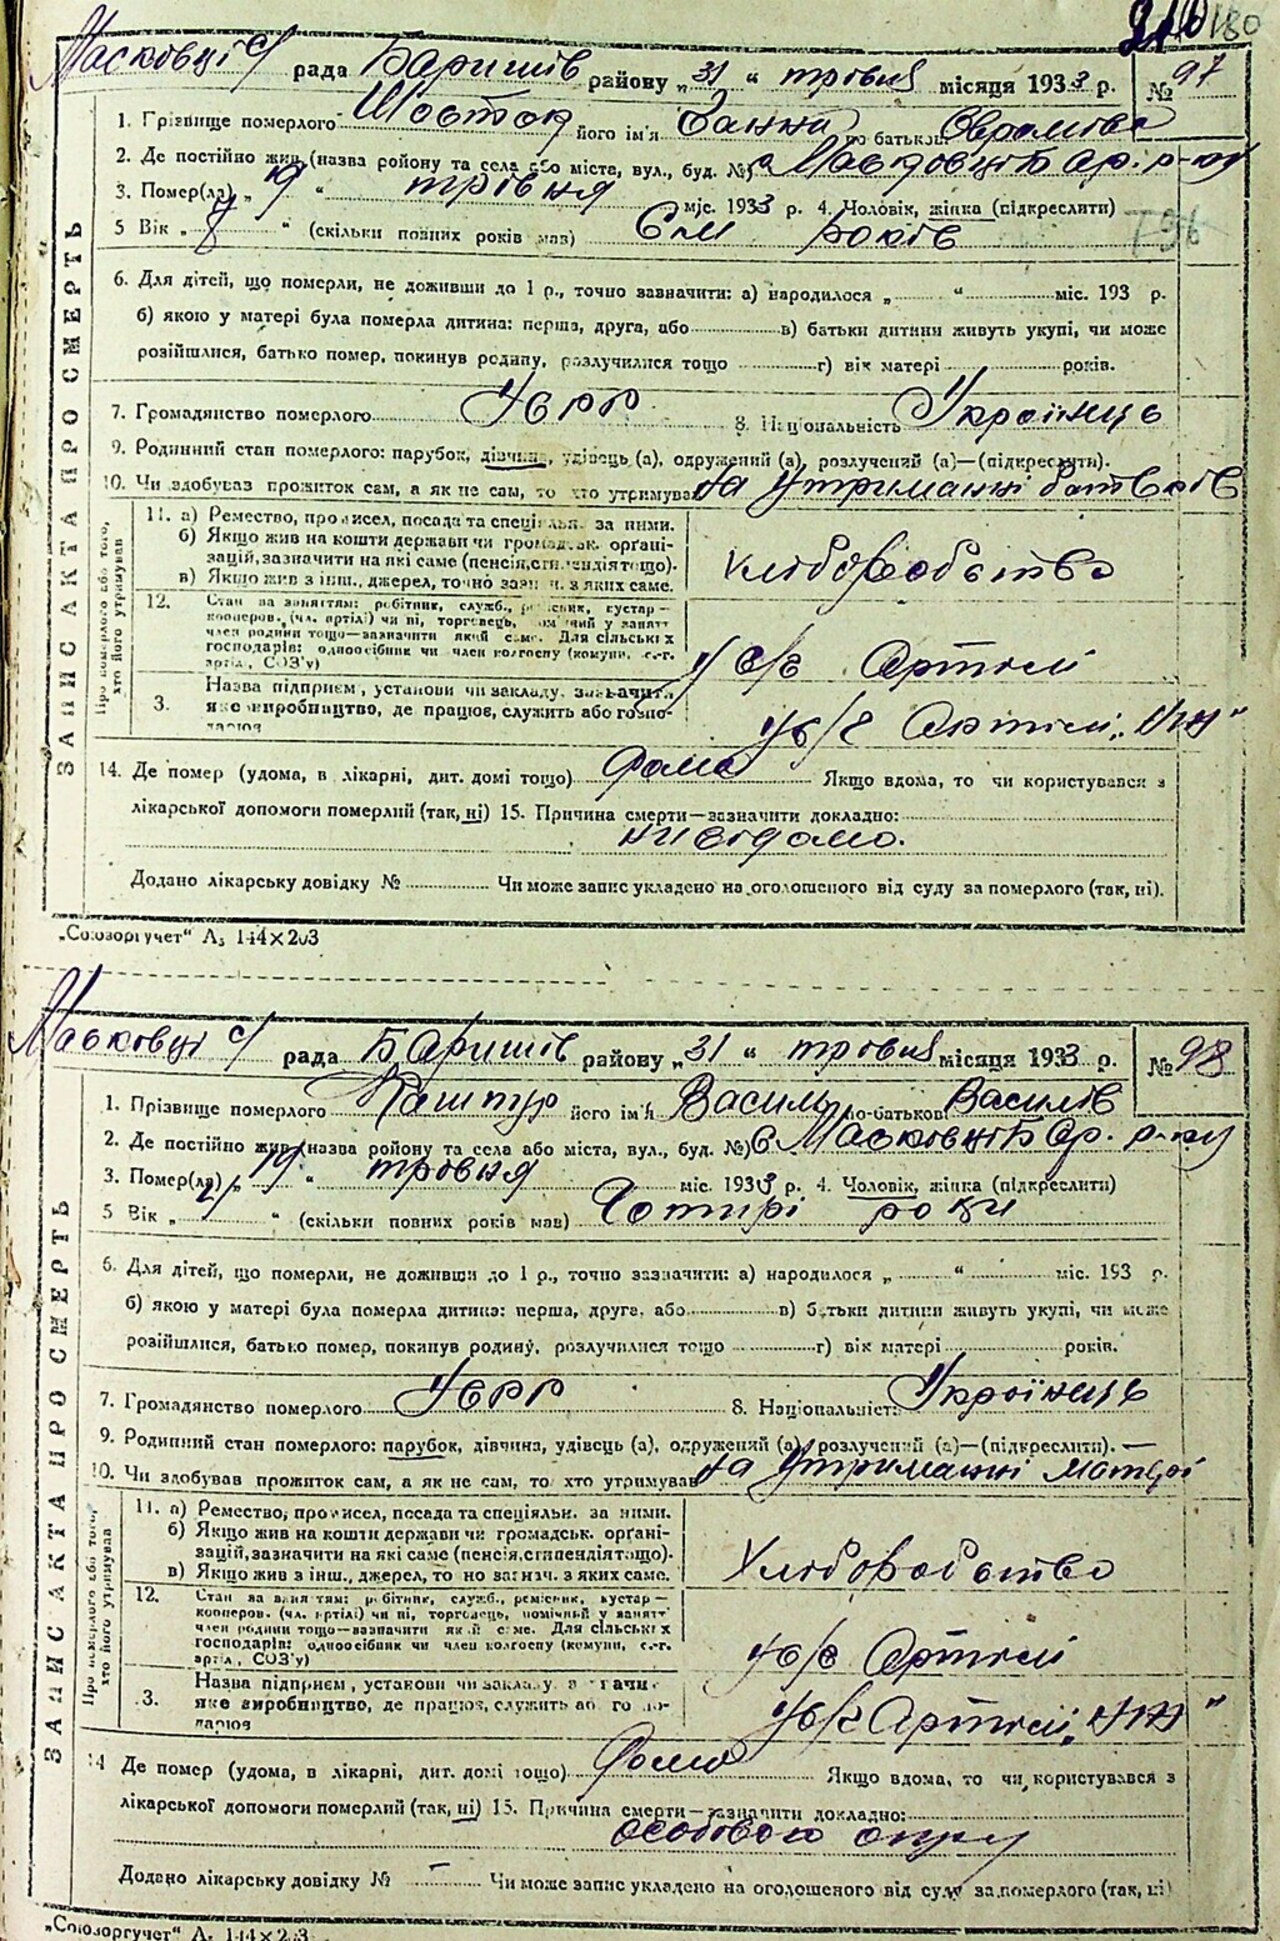 210 180
Масковці с/ рада Баришів району „31“ трівня місяця 1933 р. № 97
1. Прізвище померлого Шосток його ім'я Ганна по батькові Оврамівна
2. Де постійно жив (назва ройону та села або міста, вул., буд. №) с Масковці Бар. р-ну
3. Помер(ла) „19“ трівня міс. 1933 р. 4. Чоловік, жінка (підкреслити)
5 Вік „ 7 “ (скільки повних років мав) Сім років
6. Для дітей, що померли, не доживши до 1 р., точно зазначити: а) народилося „ “ міс. 193 р.
б) якою у матері була померла дитина: перша, друга, або в) батьки дитини живуть укупі, чи може
розійшлися, батько помер, покинув родину, розлучилися тощо г) вік матері років.
7. Громадянство померлого УСРР 8. Національність Українець
9. Родинний стан померлого: парубок, дівчина, удівець (а), одружений (а), розлучений (а)—(підкреслити).
10. Чи здобував прожиток сам, а як не сам, то хто утримував на утриманні батьків
ЗАПИС АКТА ПРО СМЕРТЬ
Про померлого або того, хто його утримував
11. а) Ремество, промисел, посада та спеціяльн. за ними.
б) Якщо жив на кошти держави чи громадськ. орґані-
зацій, зазначити на які саме (пенсія, стипендія тощо).
в) Якщо жив з інш., джерел, точно зазнач. з яких саме.
Хліборобство
12. Стан за заняттям: робітник, служб., ремісник, кустар —
кооперов. (чл. артілі) чи ні, торговець, помічний у занятт
член родини тощо—зазначити який саме. Для сільських
господарів: одноосібник чи член колгоспу (комуни, с.-г.
артіл, СОЗ'у)
У с/г Артілі
3. Назва підприєм, установи чи закладу, зазначити
яке виробництво, де працює, служить або госпо-
дарює
У с/г Артілі „
14. Де помер (удома, в лікарні, дит. домі тощо) Дома Якщо вдома, то чи користувався з
лікарської допомоги померлий (так, ні) 15. Причина смерти—зазначити докладно:
нивідомо.
Додано лікарську довідку № Чи може запис укладено на оголошеного від суду за померлого (так, ні).
„Союзоргучет“ А₅ 144×203
Масковці с/ рада Баришів району „31“ трівня місяця 1933 р. № 98
1. Прізвище померлого Каштур його ім'я Василь по-батькові Василів
2. Де постійно жив (назва району та села або міста, вул., буд. №) с Масковці Бар. р-ну
3. Помер(ла) „19“ трівня міс. 1933 р. 4. Чоловік, жінка (підкреслити)
5 Вік „ 4 “ (скільки повних років мав) Чотирі роки
6. Для дітей, що померли, не доживши до 1 р., точно зазначити: а) народилося „ “ міс. 193 р.
б) якою у матері була померла дитина: перша, друга, або в) батьки дитини живуть укупі, чи може
розійшлися, батько помер, покинув родину, розлучилися тощо г) вік матері років.
7. Громадянство померлого УСРР 8. Національність Українець
9. Родинний стан померлого: парубок, дівчина, удівець (а), одружений (а), розлучений (а)—(підкреслити).
10. Чи здобував прожиток сам, а як не сам, то хто утримував на утриманні матері
ЗАПИС АКТА ПРО СМЕРТЬ
Про померлого або того, хто його утримував
11. а) Ремество, промисел, посада та спеціяльн. за ними.
б) Якщо жив на кошти держави чи громадськ. орґані-
зацій, зазначити на які саме (пенсія, стипендія тощо).
в) Якщо жив з інш., джерел, точно зазнач. з яких саме.
Хліборобство
12. Стан за заняттям: робітник, служб., ремісник, кустар —
кооперов. (чл. артілі) чи ні, торговець, помічний у занятт
член родини тощо—зазначити який саме. Для сільських
господарів: одноосібник чи член колгоспу (комуни, с.-г.
артіл, СОЗ'у)
У с/г Артілі
3. Назва підприєм, установи чи закладу, зазначити
яке виробництво, де працює, служить або госпо-
дарює
У с/г Артілі „
14 Де помер (удома, в лікарні, дит. домі тощо) Дома Якщо вдома, то чи користувався з
лікарської допомоги померлий (так, ні) 15. Причина смерти—зазначити докладно:
особового
Додано лікарську довідку № — Чи може запис укладено на оголошеного від суду за померлого (так, ні)
„Союзоргучет“ А₅ 144×203